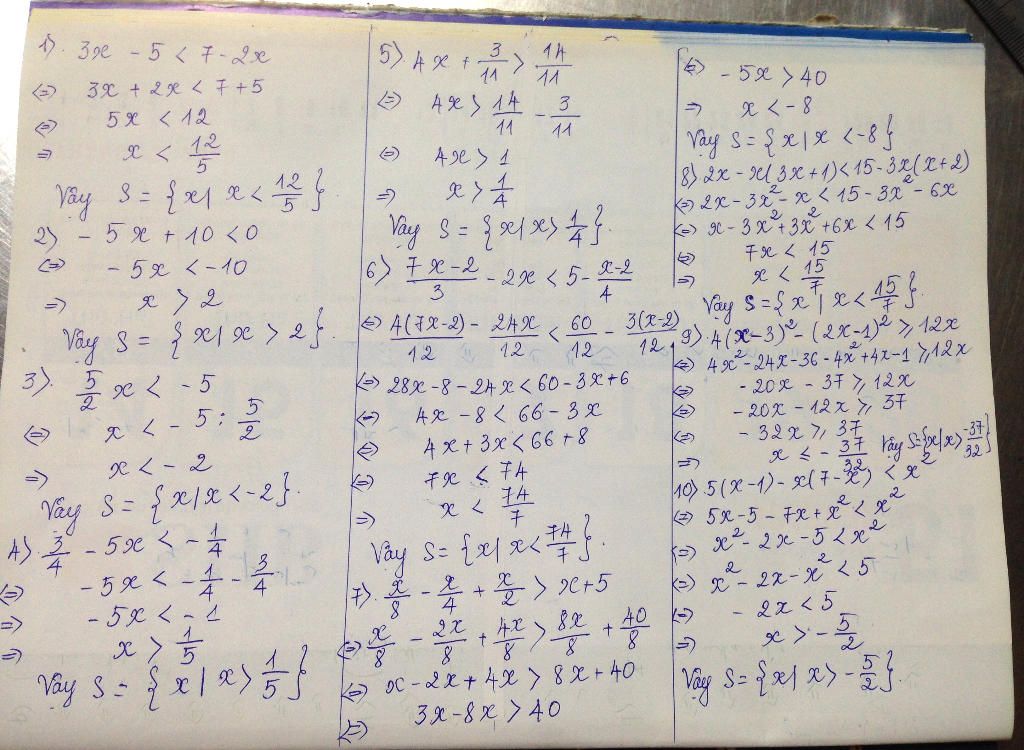 1). 3x - 5 < 7 - 2x
<=> 3x + 2x < 7 + 5
<=> 5x < 12
=> x < 12/5
Vậy S = { x | x < 12/5 }.
2) - 5x + 10 < 0
<=> - 5x < -10
=> x > 2
Vậy S = { x | x > 2 }.
3). 5/2 x < - 5
<=> x < - 5 : 5/2
=> x < - 2
Vậy S = { x | x < -2 }.
4). 3/4 - 5x < - 1/4
<=> - 5x < - 1/4 - 3/4
=> - 5x < - 1
=> x > 1/5
Vậy S = { x | x > 1/5 }
5). 4x + 3/11 > 14/11
<=> 4x > 14/11 - 3/11
<=> 4x > 1
=> x > 1/4
Vậy S = { x | x > 1/4 }.
6) (7x-2)/3 - 2x < 5 - (x-2)/4
<=> 4(7x-2)/12 - 24x/12 < 60/12 - 3(x-2)/12
<=> 28x - 8 - 24x < 60 - 3x + 6
<=> 4x - 8 < 66 - 3x
<=> 4x + 3x < 66 + 8
<=> 7x < 74
=> x < 74/7
Vậy S = { x | x < 74/7 }.
7). x/8 - x/4 + x/2 > x + 5
<=> x/8 - 2x/8 + 4x/8 > 8x/8 + 40/8
<=> x - 2x + 4x > 8x + 40
<=> 3x - 8x > 40
<=> - 5x > 40
=> x < - 8
Vậy S = { x | x < -8 }
8) 2x - x(3x + 1) < 15 - 3x(x + 2)
<=> 2x - 3x² - x < 15 - 3x² - 6x
<=> x - 3x² + 3x² + 6x < 15
<=> 7x < 15
=> x < 15/7
Vậy S = { x | x < 15/7 }.
9). 4(x-3)² - (2x-1)² ⩾ 12x
<=> 4x² - 24x - 36 - 4x² + 4x - 1 ⩾ 12x
<=> - 20x - 37 ⩾ 12x
<=> - 20x - 12x ⩾ 37
<=> - 32x ⩾ 37
=> x ≤ - 37/32 Vậy S = { x | x > -37/32 }
10). 5(x-1) - x(7-x) < x²
<=> 5x - 5 - 7x + x² < x²
<=> x² - 2x - 5 < x²
<=> x² - 2x - x² < 5
<=> - 2x < 5
=> x > - 5/2
Vậy S = { x | x > - 5/2 }.